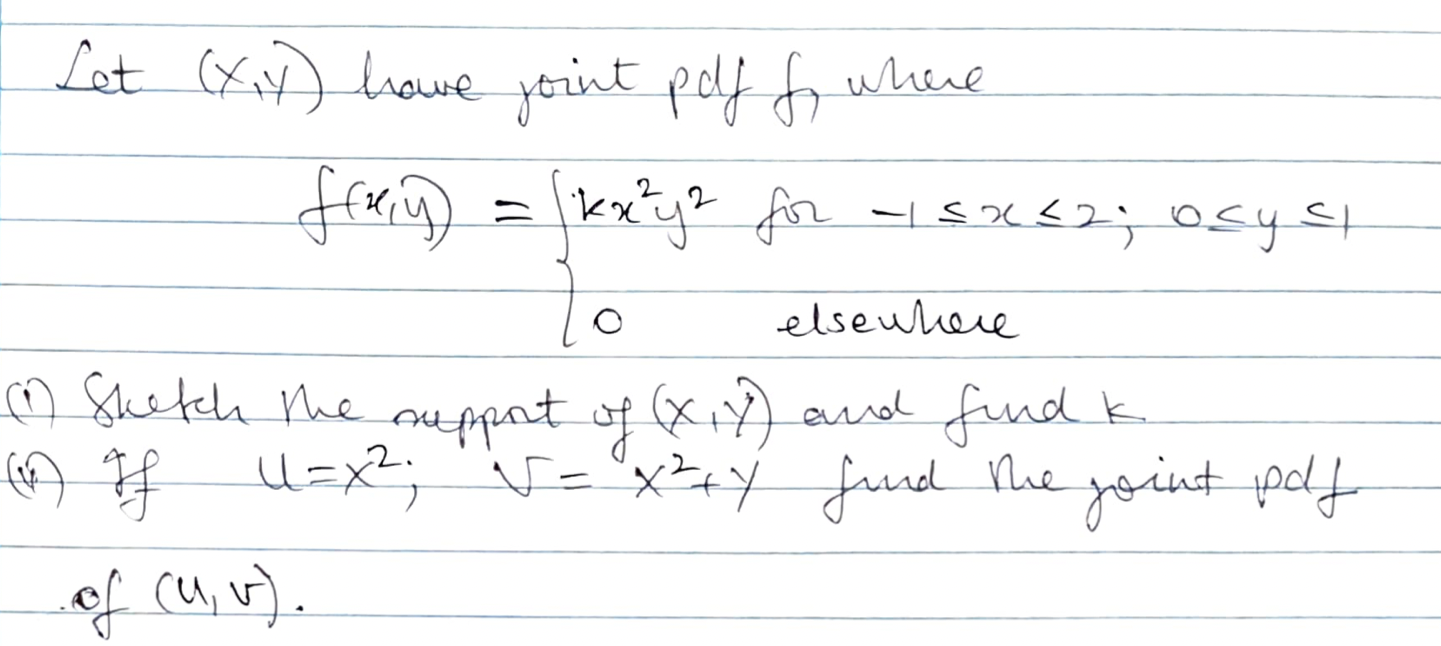 Let (X,Y) have joint pdf f, where
f(x,y) = { kx²y² for -1 ≤ x ≤ 2; 0 ≤ y ≤ 1
0 elsewhere
(i) Sketch the support of (X,Y) and find k
(ii) If U=X²; V = X²+Y find the joint pdf
of (U,V).